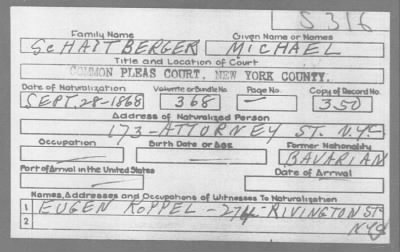 S 316
Family Name Given Name or Names
SCHATTBERGER MICHAEL
Title and Location of Court
COMMON PLEAS COURT, NEW YORK COUNTY.
Date of Naturalization Volume or Bundle No. Page No. Copy of Record No.
SEPT. 28-1868 368 — 350
Address of Naturalized Person
173-ATTORNEY ST. N.Y.C
Occupation Birth Date or Age Former Nationality
BAVARIAN
Port of Arrival in the United States Date of Arrival
Names, Addresses and Occupations of Witnesses To Naturalization
1 EUGEN KOPPEL - 274 - RIVINGTON ST.
2 N.Y.C